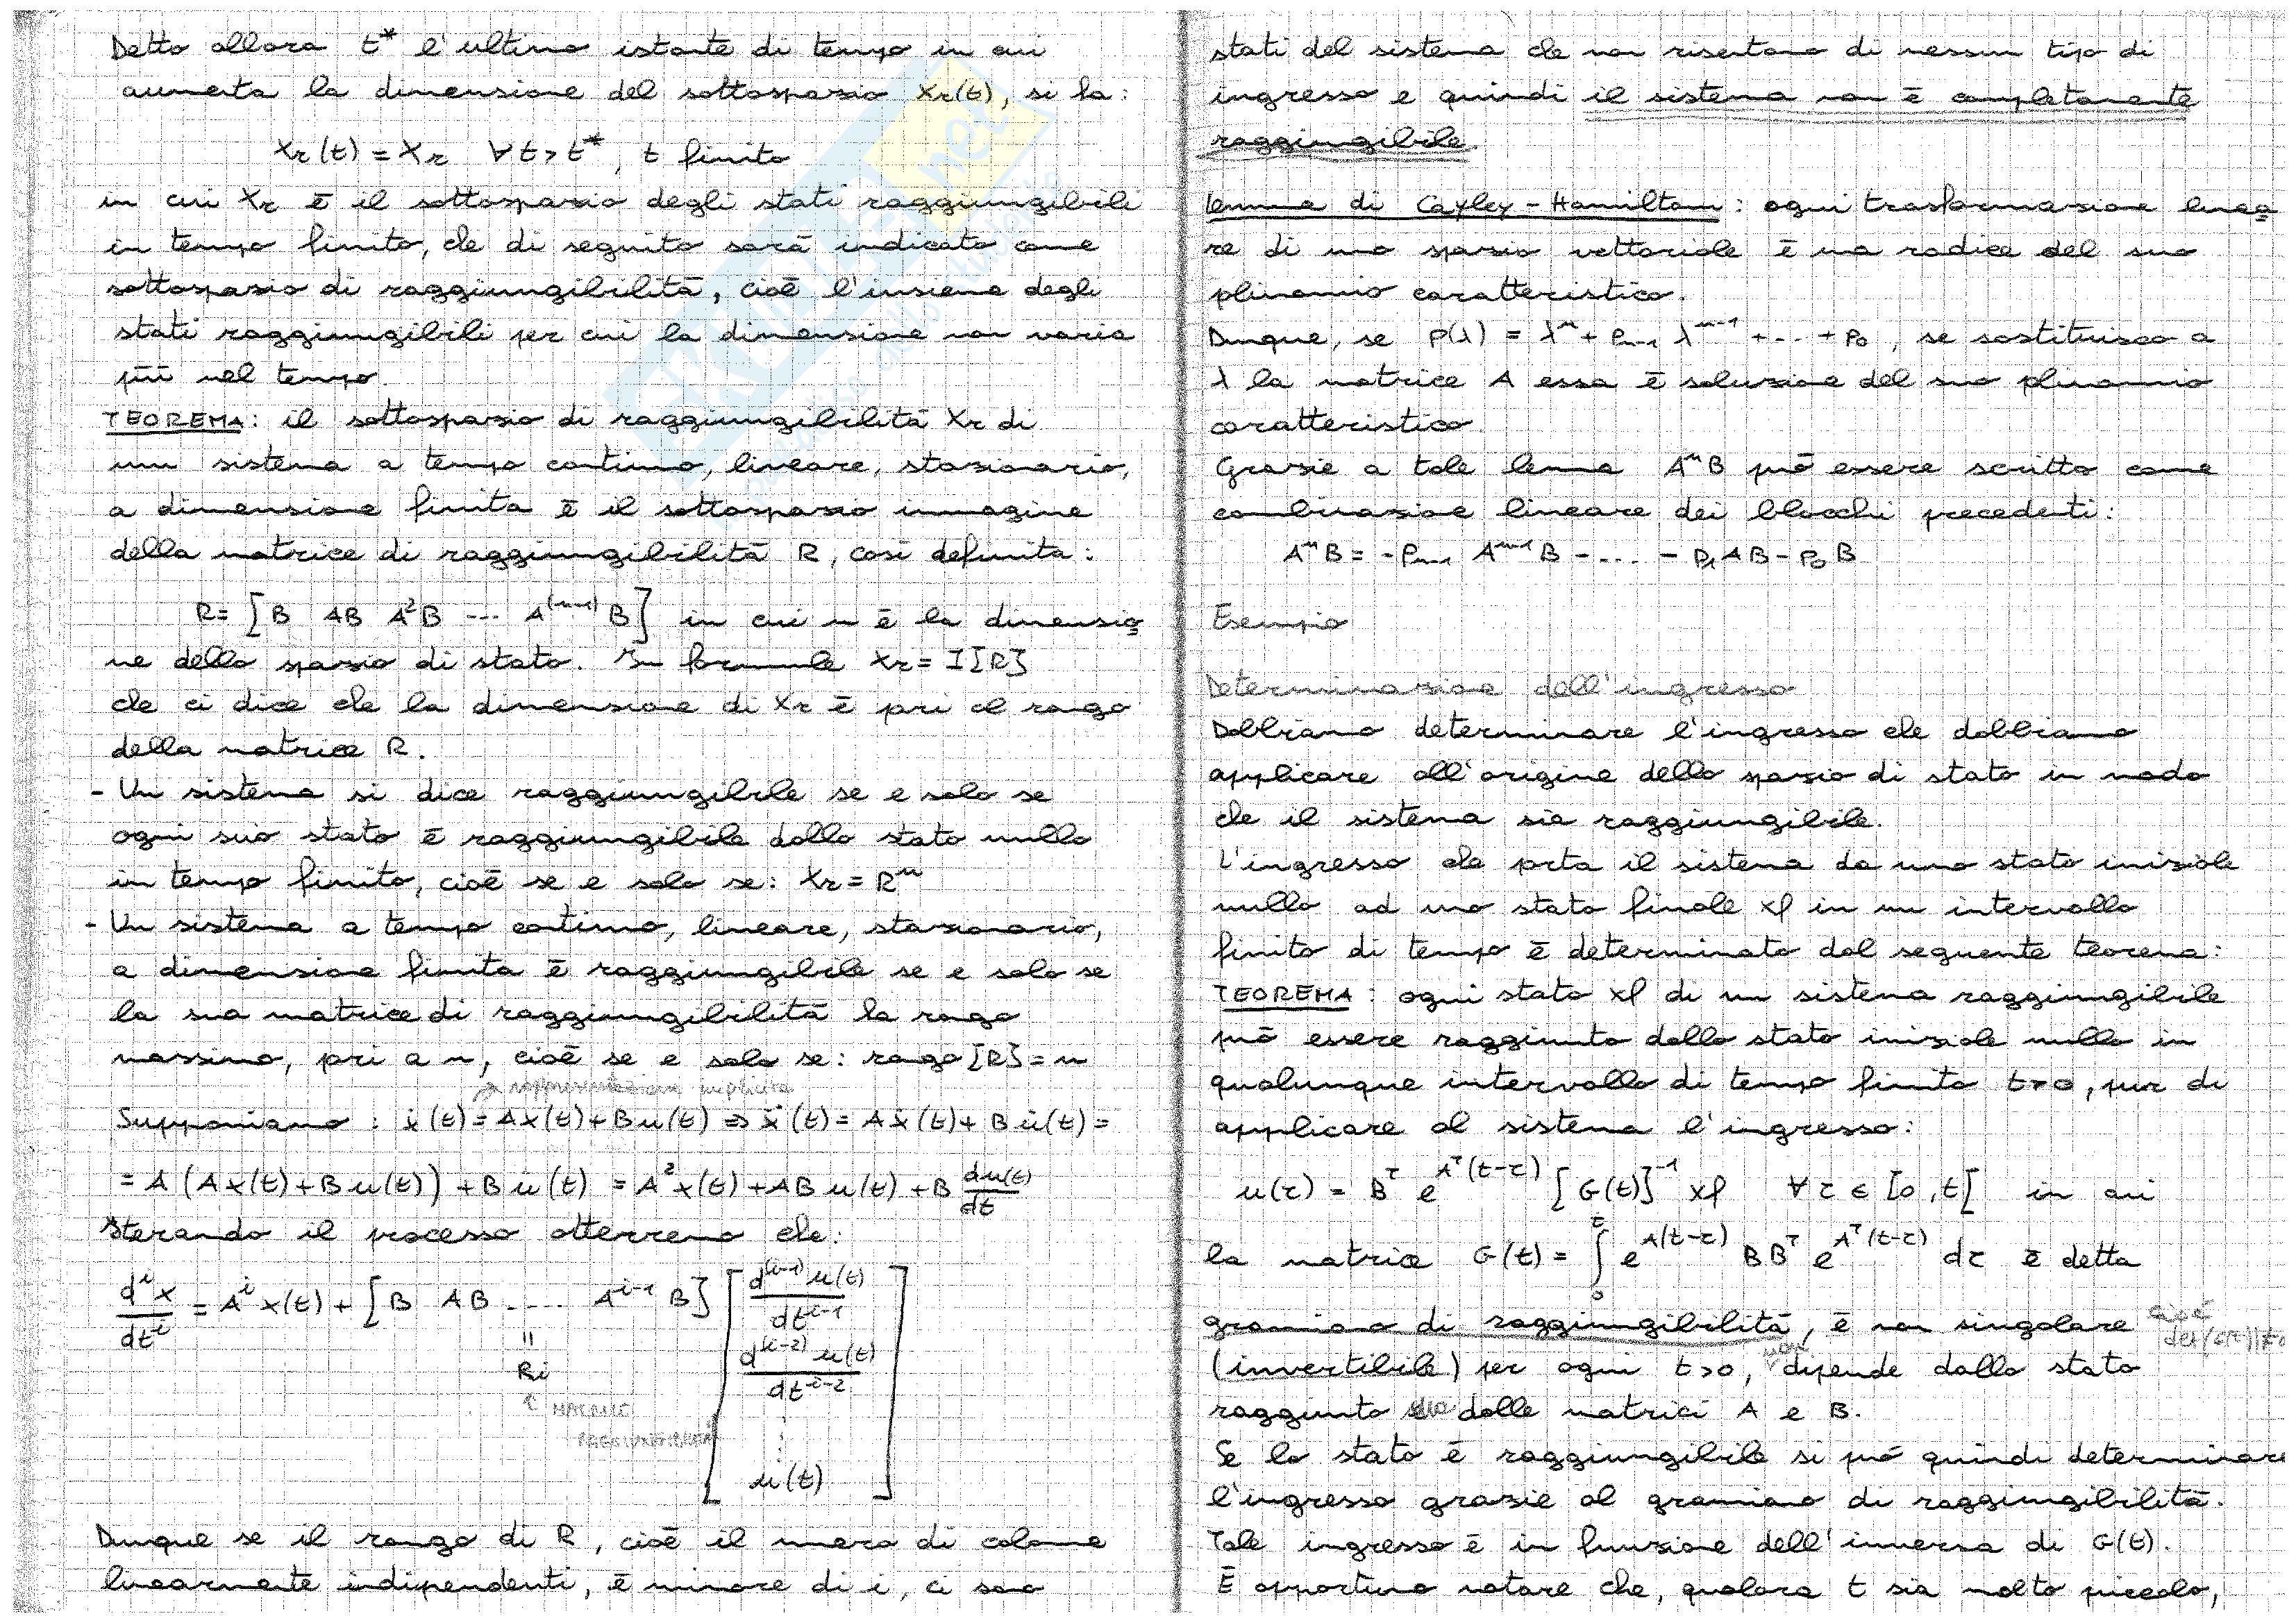 Detto allora t* l'ultimo istante di tempo in cui
aumenta la dimensione del sottospazio Xr(t), si ha:
Xr(t) = Xr ∀ t > t*, t finito
in cui Xr è il sottospazio degli stati raggiungibili
in tempo finito, che di seguito sarà indicato come
sottospazio di raggiungibilità, cioè l'insieme degli
stati raggiungibili per cui la dimensione non varia
più nel tempo.
TEOREMA: il sottospazio di raggiungibilità Xr di
un sistema a tempo continuo, lineare, stazionario,
a dimensione finita è il sottospazio immagine
della matrice di raggiungibilità R, così definita:
R = [B AB A²B --- A^(n-1) B] in cui n è la dimensio=
ne dello spazio di stato. In formule Xr = I[R]
che ci dice che la dimensione di Xr è pari al rango
della matrice R.
- Un sistema si dice raggiungibile se e solo se
ogni suo stato è raggiungibile dallo stato nullo
in tempo finito, cioè se e solo se: Xr = R^n
- Un sistema a tempo continuo, lineare, stazionario,
a dimensione finita è raggiungibile se e solo se
la sua matrice di raggiungibilità ha rango
massimo, pari a n, cioè se e solo se: rango [R] = n
rappresentazione implicita
Supponiamo: ẋ(t) = Ax(t) + Bu(t) ⇒ ẍ(t) = Aẋ(t) + Bu̇(t) =
= A(Ax(t) + Bu(t)) + Bu̇(t) = A²x(t) + ABu(t) + B du(t)/dt
Iterando il processo otterremo che:
d^i x/dt^i = A^i x(t) + [B AB ---- A^(i-1) B] [d^(i-1) u(t)/dt^(i-1)
d^(i-2) u(t)/dt^(i-2)
⋮
u(t)]
=
Ri
↑ MATRICE
RAGGIUNGIBILITÀ
Dunque se il rango di R, cioè il numero di colonne
linearmente indipendenti, è minore di i, ci sono
stati del sistema che non risentono di nessun tipo di
ingresso e quindi il sistema non è completamente
raggiungibile.
Lemma di Cayley-Hamilton: ogni trasformazione linea=
re di uno spazio vettoriale è una radice del suo
plinomio caratteristico.
Dunque, se p(λ) = λ^n + p_(n-1) λ^(n-1) + --- + p₀, se sostituisco a
λ la matrice A essa è soluzione del suo plinomio
caratteristico.
Grazie a tale lemma A^n B può essere scritto come
combinazione lineare dei blocchi precedenti:
A^n B = -p_(n-1) A^(n-1) B - ... - p₁AB - p₀B
Esempio
Determinazione dell'ingresso
Dobbiamo determinare l'ingresso che dobbiamo
applicare all'origine dello spazio di stato in modo
che il sistema sia raggiungibile.
L'ingresso che porta il sistema da uno stato iniziale
nullo ad uno stato finale xf in un intervallo
finito di tempo è determinato dal seguente teorema:
TEOREMA: ogni stato xf di un sistema raggiungibile
può essere raggiunto dallo stato iniziale nullo in
qualunque intervallo di tempo finito t>0, pur di
applicare al sistema l'ingresso:
u(τ) = B^T e^(A^T(t-τ)) [G(t)]^-1 xf ∀ τ ∈ [0,t[ in cui
la matrice G(t) = ∫₀^t e^(A(t-τ)) BB^T e^(A^T(t-τ)) dτ è detta
gramiano di raggiungibilità, è non singolare cioè det(G(t))≠0
(invertibile) per ogni t>0, non dipende dallo stato
raggiunto ma dalle matrici A e B.
Se lo stato è raggiungibile si può quindi determinare
l'ingresso grazie al gramiano di raggiungibilità.
Tale ingresso è in funzione dell'inversa di G(t).
È opportuno notare che, qualora t sia molto piccolo,